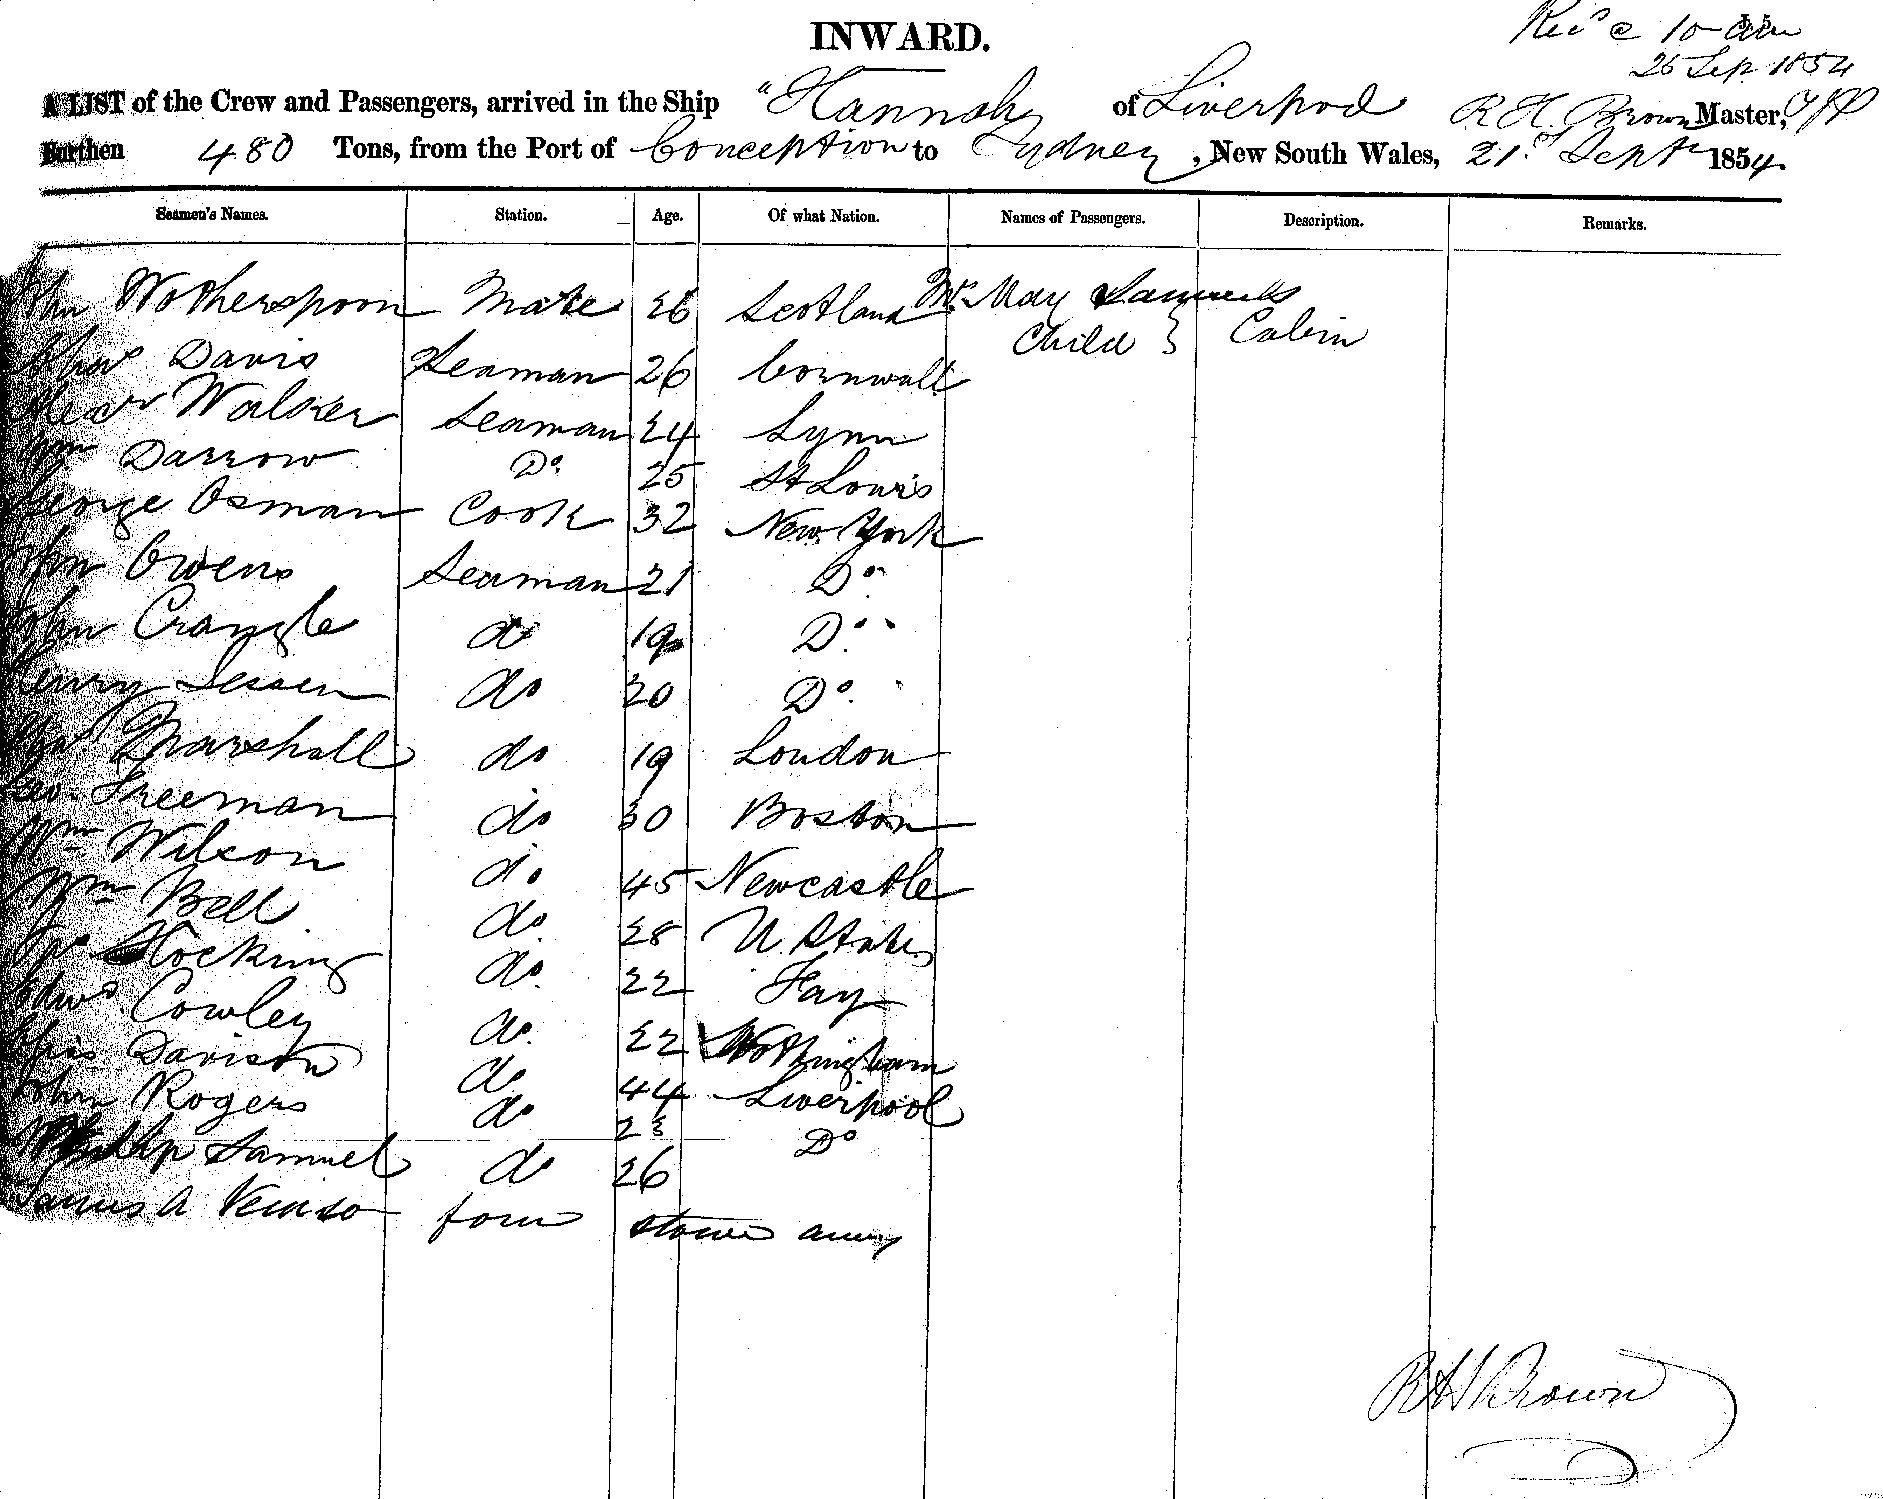 INWARD.
Rec'd 10 am
26 Sep 1854
A LIST of the Crew and Passengers, arrived in the Ship "Hannah of Liverpool R H. Brown Master,
Burthen 480 Tons, from the Port of Conception to Sydney, New South Wales, 21st Septr 1854.
Seamen's Names. Station. Age. Of what Nation. Names of Passengers. Description. Remarks.
John Wotherspoon Mate 26 Scotland Mrs. May Samuels
Child } Cabin
Davis Seaman 26 Cornwall
Alexr Walker Seaman 24 Lynn
Wm Darrow Do. 25 St Louis
George Osman Cook 32 New York
John Owens Seaman 21 Do.
John Crangle do 19 Do.
Henry Jessen do 20 Do.
Marshall do 19 London
Geo. Freeman do 30 Boston
Wm Wilson do 45 Newcastle
Wm Bell do 28 U. States
Hocking do. 22 Fay
Edwd. Cowley do. 22 Nottingham
Davison do 44 Liverpool
John Rogers do 23 Do
Phillip Samuel do 26
James A four stowe away
R H Brown